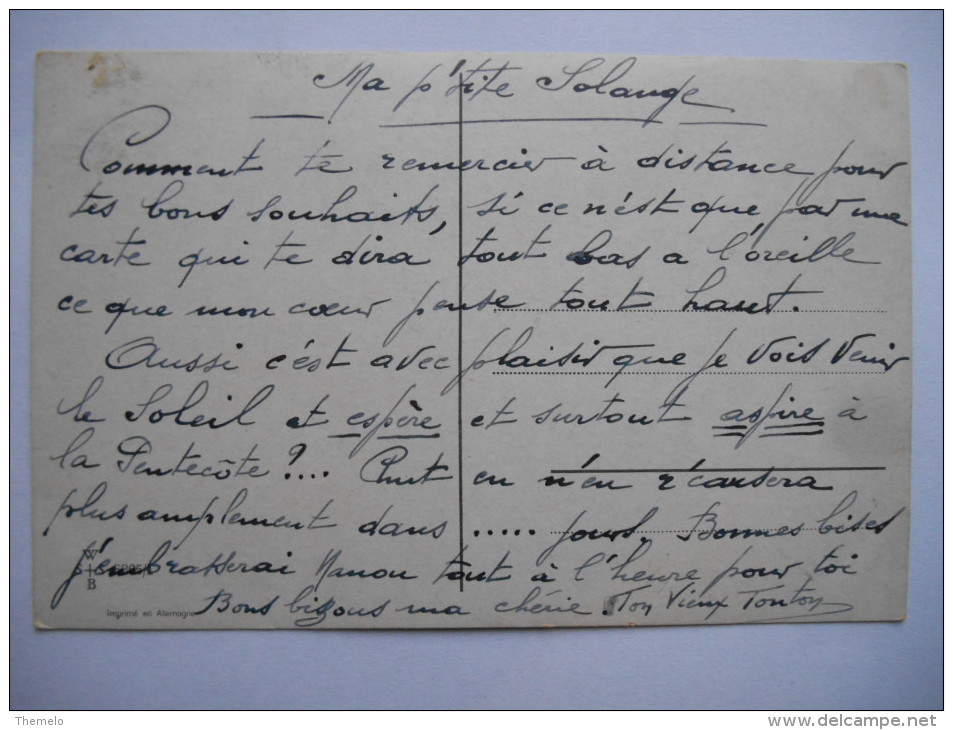 Ma p'tite Solange
Comment te remercier à distance pour
tes bons souhaits, si ce n'ést que par une
carte qui te dira tout bas a l'oreille
ce que mon cœur pense tout haut.
Aussi c'ést avec plaisir que je vois venir
le Soleil et espère et surtout aspire à
la Pentecôte ?... Chut en n'en r'causera
plus amplement dans ..... jours. Bonnes bises
j'embrasserai Nanou tout à l'heure pour toi
W
S+S
B
Imprimé en Allemagne
Bons bizous ma chérie. Ton Vieux Tonton
Themelo
www.delcampe.net